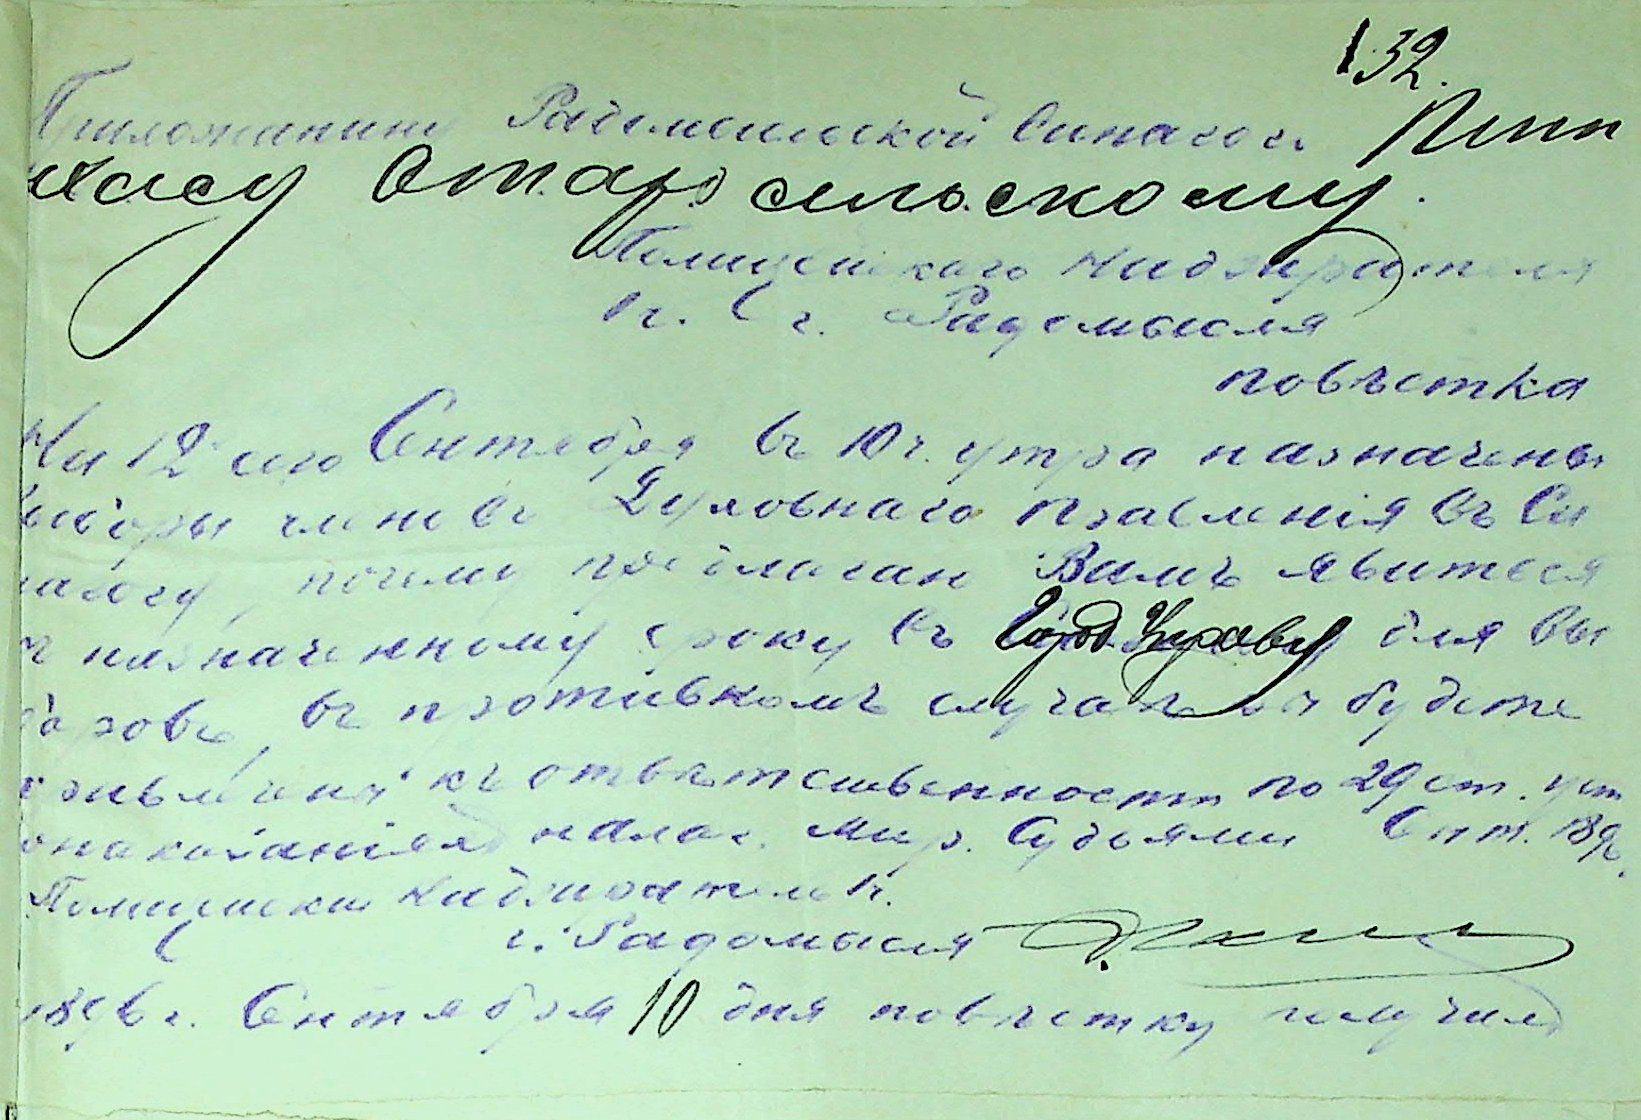 132.
Прихожанину Радомысльской Синагоги Пин
хасу Старосельскому.
Полицейскаго Надзирателя
1 ч. г. Радомысля
повѣстка
На 12 сего Сентября въ 10 ч. утра назначены
выборы членовъ Духовнаго правленія въ Си
нагогу, почему предлагаю Вамъ явиться
къ назначенному сроку въ Город Управу для вы
боровъ, въ противномъ случаѣ будете
привлечены къ отвѣтственности по 29 ст. уст
о наказаніяхъ налаг. Мир. Судьями Снт. 189
Полицейскій Надзиратель 1 ч.
г. Радомысля
1896 г. Сентября 10 дня повѣстку получилъ